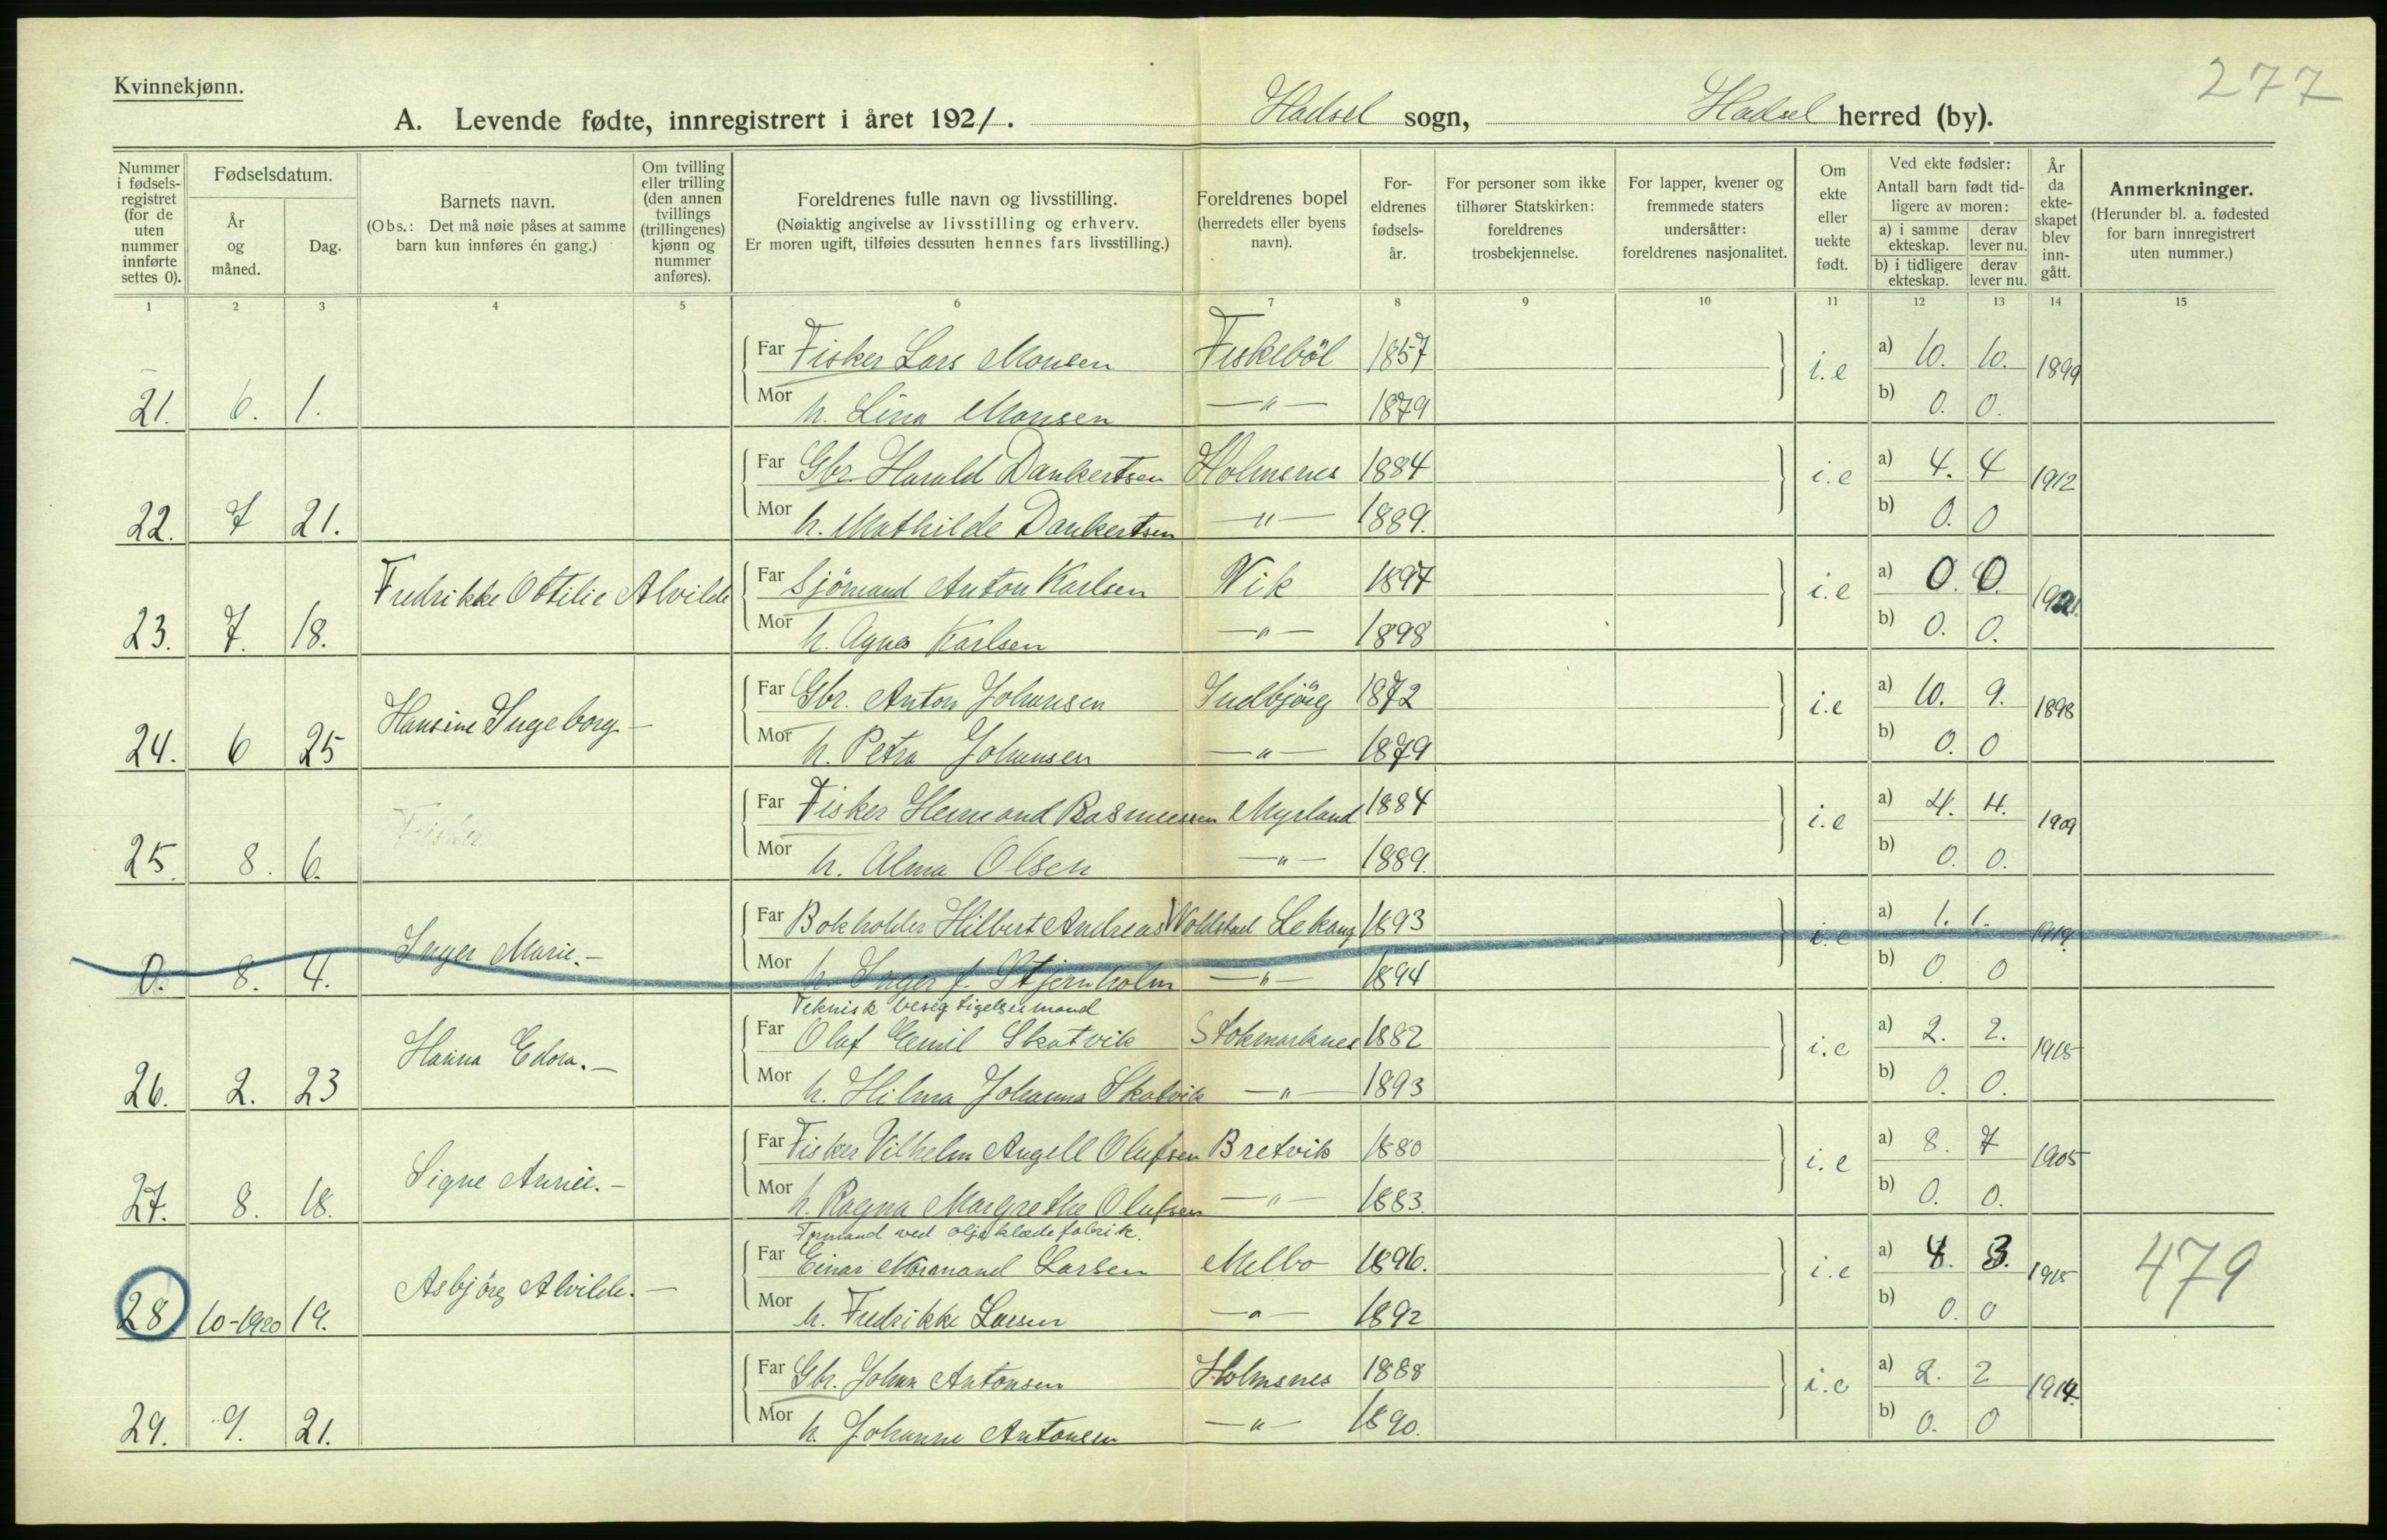 277
Kvinnekjønn.
A. Levende fødte, innregistrert i året 1921. Hadsel sogn, Hadsel herred (by).
Nummer i fødselsregistret (for de uten nummer innførte settes 0).
Fødselsdatum.
År og måned.
Dag.
Barnets navn.
(Obs.: Det må nøie påses at samme barn kun innføres én gang.)
Om tvilling eller trilling (den annen tvillings (trillingenes) kjønn og nummer anføres).
Foreldrenes fulle navn og livsstilling.
(Nøiaktig angivelse av livsstilling og erhverv.
Er moren ugift, tilføies dessuten hennes fars livsstilling.)
Foreldrenes bopel (herredets eller byens navn).
Foreldrenes fødselsår.
For personer som ikke tilhører Statskirken: foreldrenes trosbekjennelse.
For lapper, kvener og fremmede staters undersåtter: foreldrenes nasjonalitet.
Om ekte eller uekte født.
Ved ekte fødsler: Antall barn født tidligere av moren:
a) i samme ekteskap. derav lever nu.
b) i tidligere ekteskap. derav lever nu.
År da ekteskapet blev inngått.
Anmerkninger.
(Herunder bl. a. fødested for barn innregistrert uten nummer.)
1 2 3 4 5 6 7 8 9 10 11 12 13 14 15
Far Fisker Lars Monsen Fiskeböl 1857 i.e a) 10. 10. 1899
21. 6. 1. Mor h. Lina Monsen —"— 1879 b) 0. 0.
Far Gbr. Harald Dankertsen Holmsnes 1884 i.e a) 4. 4 1912
22. 7 21. Mor h. Mathilde Dankertsen —"— 1889. b) 0. 0
Fredrikke Ottilie Alvilde Far Sjömand Anton Karlsen Vik 1897 i.e a) 0. 0.
23. 7. 18. Mor h. Agnes Karlsen —"— 1898 b) 0. 0.
Hansine Ingeborg — Far Gbr. Anton Johansen 1872 i.e a) 10. 9. 1898
24. 6 25 Mor h. Petra Johansen —"— 1879 b) 0. 0
Fisker Far Fisker Hermand Rasmussen Myrland 1884 i.e a) 4. 4. 1909
25. 8. 6. Mor h. Alma Olsen —"— 1889. b) 0. 0.
Inger Marie. — Far Bokholder Hilbert Andreas Woldstad Lekang 1893 i.e a) 1. 1. 1919.
0. 8. 4. Mor h. Inger f. Stjernholm —"— 1894 b) 0 0
Teknisk besigtigelsesmand
Hanna Edora. — Far Olaf Emil Skatvik Stokmarknes 1882 i.e a) 2. 2. 1918
26. 2. 23 Mor h. Hilma Johanna Skatvik —"— 1893 b) 0. 0.
Signe Annie. — Far Fisker Vilhelm Angell Olufsen Bretvik 1880 i.e a) 8. 7 1905
27. 8. 18. Mor h. Ragna Margrethe Olufsen —"— 1883. b) 0. 0.
Formand ved oljeklædefabrik.
Asbjörg Alvilde. — Far Einar Larsen Melbo 1896. i.e a) 4. 3. 1915 479
28. 10-1920 19. Mor h. Fredrikke Larsen —"— 1892 b) 0. 0
Far Gbr. Johan Antonsen Holmsnes 1888 i.e a) 2. 2 1914.
29. 9. 21. Mor h. Johanne Antonsen —"— 1890. b) 0. 0